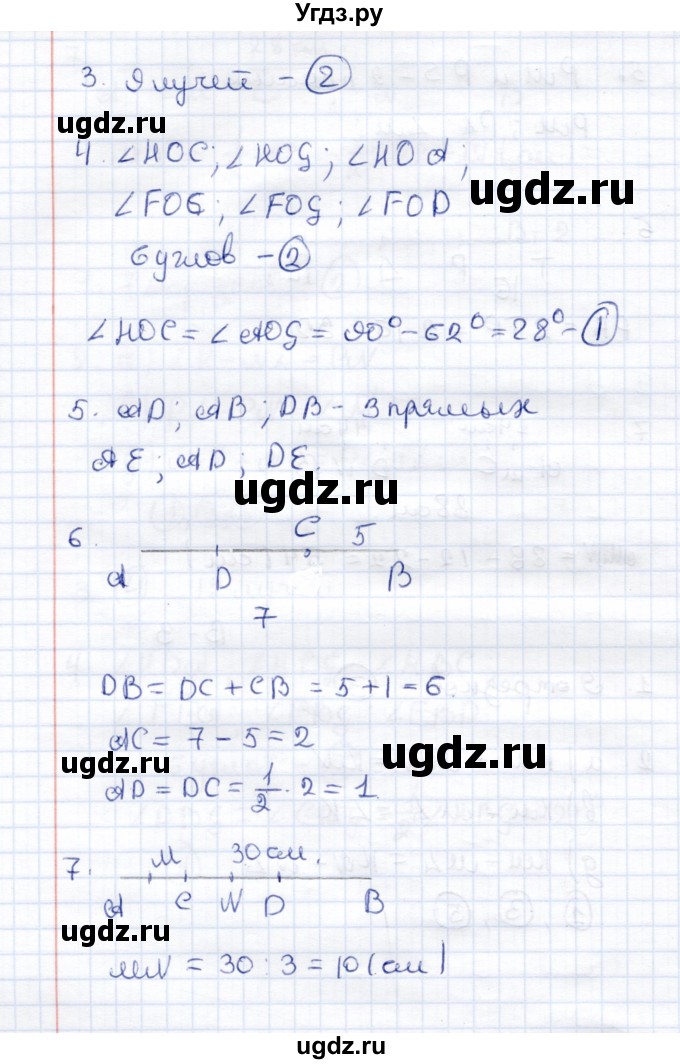 Угдз.ру
3. 9 лучей – 2
ugdz.ru
4. ∠HOC; ∠HOG; ∠HOA;
ugdz.ru
∠FOG; ∠FOG; ∠FOD
6 углов – 2
∠HOC = ∠AOG = 90° – 62° = 28° – 1
5. AD; AB; DB – 3 прямых
AE; AD; DE.
ugdz.ru
6. C 5
A D B
7
DB = DC + CB = 5 + 1 = 6.
AC = 7 – 5 = 2
ugdz.ru ugdz.ru
AD = DC = 1/2 · 2 = 1
7. M 30 см.
A C N D B
ugdz.ru
MN = 30 : 3 = 10 (см)
ugdz.ru